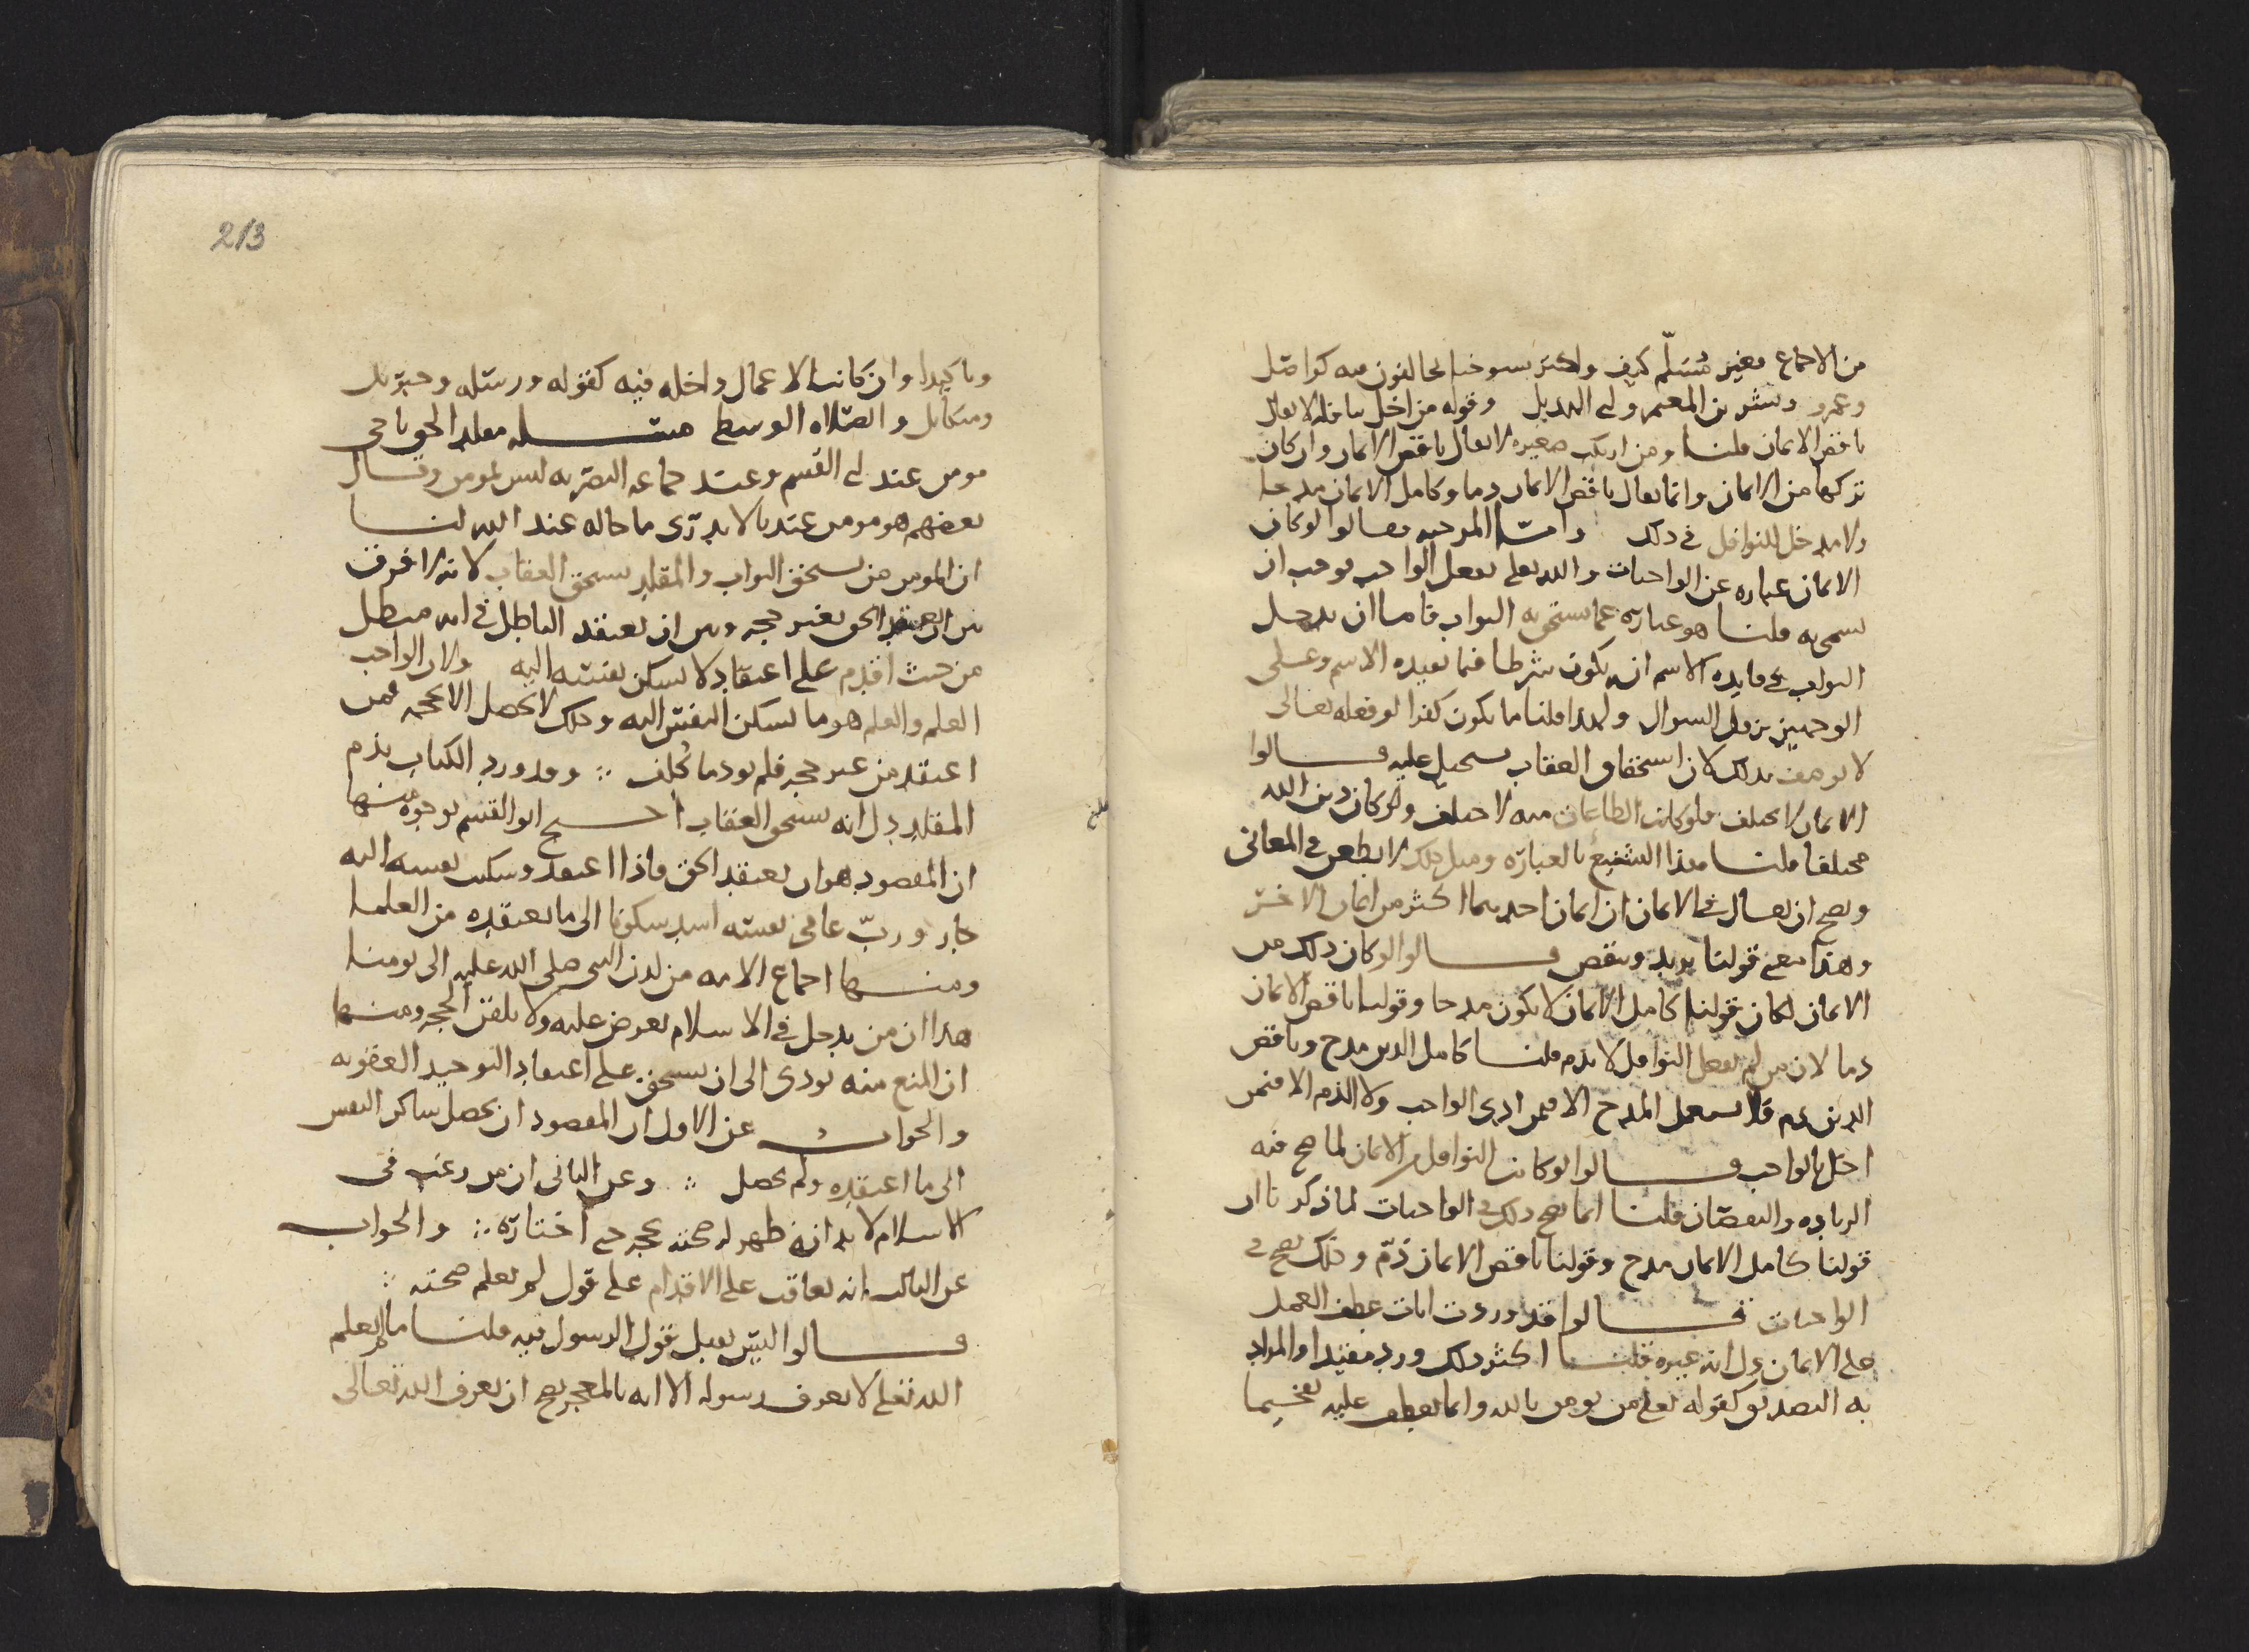 من الاجماع فغير مُسَلّم كيف واكثر شيوخنا يخالفون فيه كواصل
وعمرو وبشر بن المعتمر وابي الهذيل وقوله من اخل بنافلة لا يقال
ناقص الايمان قلنا ومن ارتكب صغيره لا يقال ناقص الايمان وان كان
تركها من الايمان وانما يقال ناقص الايمان ذما وكامل الايمان مدحا
ولا مدخل للنوافل في ذلك وامّا المرجيه فقالوا لو كان
الايمان عباره عن الواجبات والله تعلى يفعل الواجب فوجب ان
يسمى به قلنا هو عباره عما يستحق به الثواب فاما ان يدخل
الثواب في فايده الاسم او يكون شرطا فيما يفيده الاسم وعلى
الوجهين يزول السوال ولهذا قلنا ما يكون كفرا لو فعله تعالى
لا يوصف بذلك لان استحقاق العقاب يستحيل عليه قالوا
الايمان لا يختلف فلو كانت الطاعات منه لاختلف ولو كان دين الله
مختلفا قلنا هذا التشنيع بالعباره ومثل ذلك لا يطعن في المعاني
ويصح ان يقال في الايمان ان ايمان احدهما اكثر من ايمان الاخر
وهذا معنى قولنا يزيد وينقص قالوا لو كان ذلك من
الايمان لكان قولنا كامل الايمان لا يكون مدحا وقولنا ناقص الايمان
ذما لان من لم يفعل النوافل لا يذم قلنا كامل الدين مدح وناقص
الدين ذم فلا يستعمل المدح الا فيمن ادى الواجب ولا الذم الا فيمن
اخل بالواجب قالوا لو كانت النوافل من الايمان لما صح فيه
الزياده والنقصان قلنا انما يصح ذلك في الواجبات لما ذكرنا ان
قولنا كامل الايمان مدح وقولنا ناقص الايمان ذمّ وذلك يصح في
الواجبات قالوا قد وردت ايات عطف العمل
على الايمان دل انه غيره قلنا اكثر ذلك ورد مقيدا والمراد
به التصديق كقوله تعلى من يومن بالله وانما يعطف عليه تفخيما
213
وتاكيدا وان كانت الاعمال داخله فيه كقوله ورسله وجبريل
وميكايل والصلاه الوسطى مسئله مقلد الحق ناجي
مومن عند ابي القسم وعند جماعه البصريه ليس بمومن وقال
بعضهم هو مومن عندنا لا يدرى ما حاله عند الله لنا
ان المومن من يستحق الثواب والمقلد يستحق العقاب لانه لا فرق
بين ان يعتقد الحق بغير حجه وبين ان يعتقد الباطل في انه مبطل
من حيث اقدم على اعتقاد لا تسكن نفسه اليه ولان الواجب
العلم والعلم هو ما تسكن النفس اليه وذلك لا يحصل الا بحجه فمن
اعتقد من غير حجه فلم يود ما كُلف وقد ورد الكتاب بذم
المقلد دل انه يستحق العقاب احتج ابو القسم بوجوه منها
ان المقصود هو ان يعتقد الحق فاذا اعتقد وسكنت نفسه اليه
جاز وربّ عامي نفسه اشد سكونا الى ما يعتقده من العلما
ومنها اجماع الامه من لدن النبى صلى الله عليه الى يومنا
هذا ان من يدخل في الاسلام يعرض عليه ولا يلقن الحجه ومنها
ان المنع منه يودى الى ان يستحق على اعتقاد التوحيد العقوبه
والجواب عن الاول ان المقصود ان يحصل ساكن النفس
الى ما اعتقده ولم يحصل وعن الثانى ان من رغب فى
الاسلام لا بد ان يظهر له صحته بحجه حتى اختاره والجواب
عن الثالث انه يعاقب على الاقدام على قول لم يعلم صحته
قالوا اليس يقبل قول الرسول فيه قلنا ما لم يعلم
الله تعلى لا يعرف رسوله الا انه بالمعجز يصح ان يعرف الله تعالى